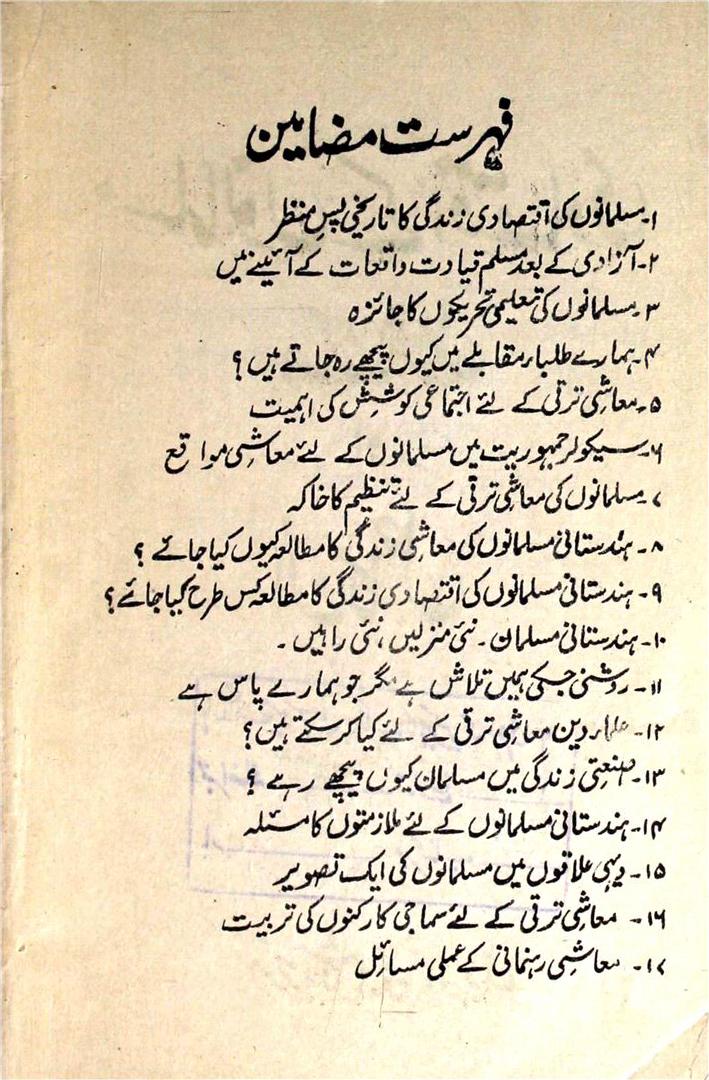 فہرست مضامین
۱۔ مسلمانوں کی اقتصادی زندگی کا تاریخی پس منظر
۲۔ آزادی کے بعد مسلم قیادت واقعات کے آئینے میں
۳۔ مسلمانوں کی تعلیمی تحریکوں کا جائزہ
۴۔ ہمارے طلباء مقابلے میں کیوں پیچھے رہ جاتے ہیں؟
۵۔ معاشی ترقی کے لئے اجتماعی کوشش کی اہمیت
۶۔ سیکولر جمہوریت میں مسلمانوں کے لئے معاشی مواقع
۷۔ مسلمانوں کی معاشی ترقی کے لئے تنظیم کا خاکہ
۸۔ ہندستانی مسلمانوں کی معاشی زندگی کا مطالعہ کیوں کیا جائے؟
۹۔ ہندستانی مسلمانوں کی اقتصادی زندگی کا مطالعہ کس طرح کیا جائے؟
۱۰۔ ہندستانی مسلمان۔ نئی منزلیں، نئی راہیں۔
۱۱۔ روشنی جسکی ہمیں تلاش ہے مگر جو ہمارے پاس ہے
۱۲۔ علماء دین معاشی ترقی کے لئے کیا کر سکتے ہیں؟
۱۳۔ صنعتی زندگی میں مسلمان کیوں پیچھے رہے؟
۱۴۔ ہندستانی مسلمانوں کے لئے ملازمتوں کا مسئلہ
۱۵۔ دیہی علاقوں میں مسلمانوں کی ایک تصویر
۱۶۔ معاشی ترقی کے لئے سماجی کارکنوں کی تربیت
۱۷۔ معاشی رہنمائی کے عملی مسائل